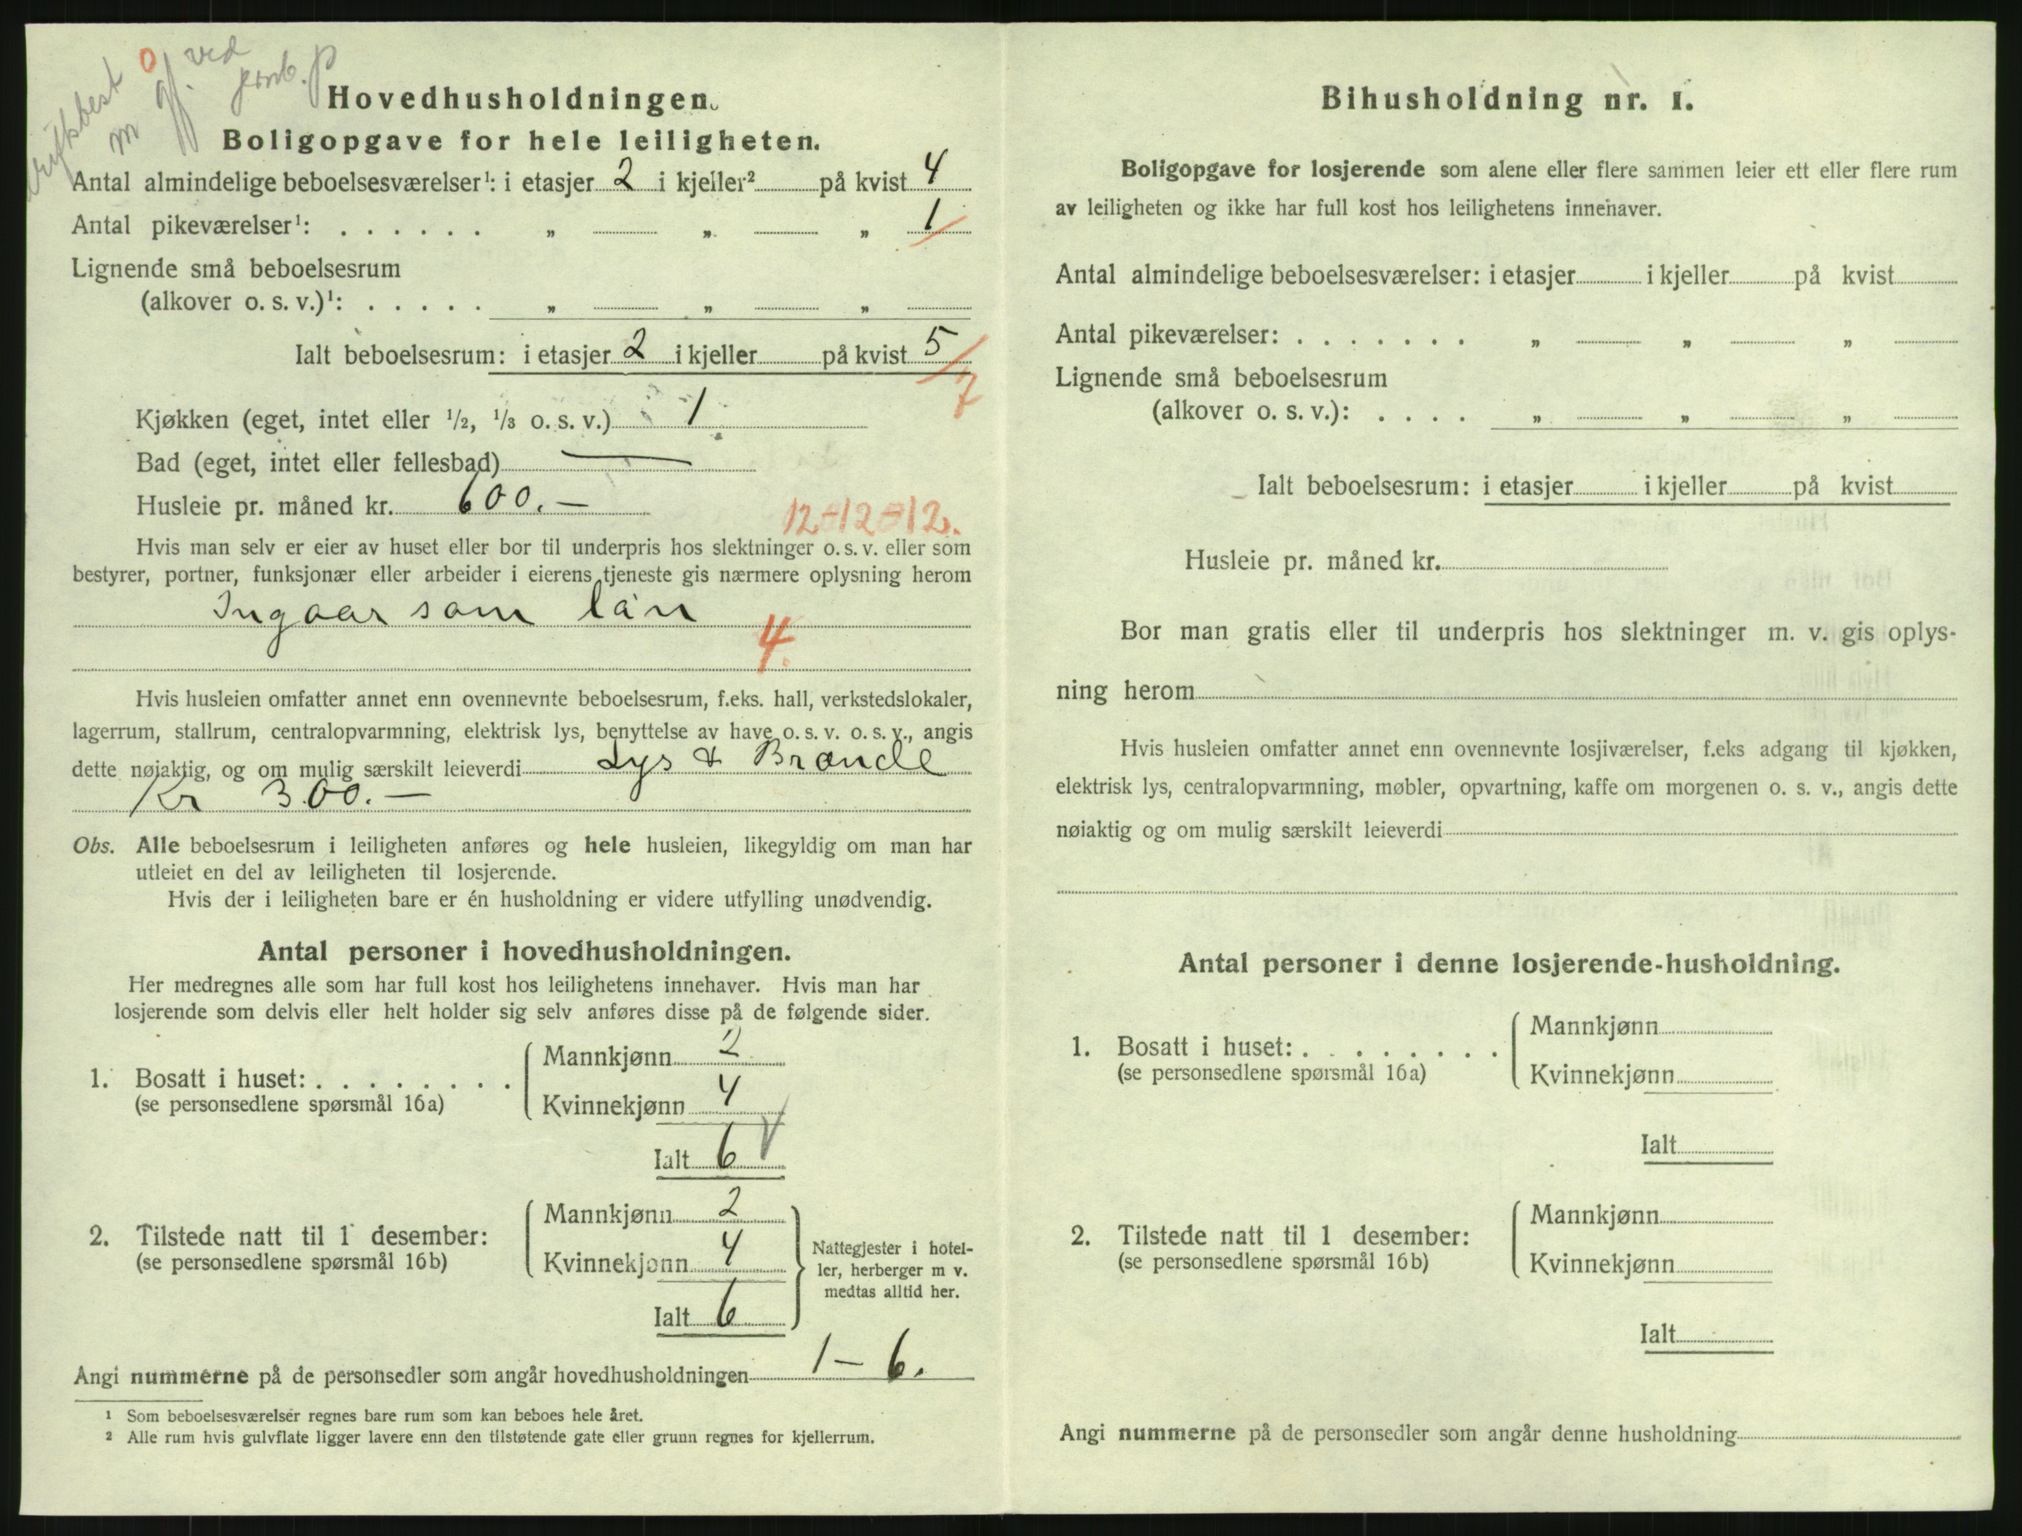 0
m gf. ved
Hovedhusholdningen.
Boligopgave for hele leiligheten.
Antal almindelige beboelsesværelser¹: i etasjer 2 i kjeller² på kvist 4
Antal pikeværelser¹: . . . . . . „ „ „ 1
Lignende små beboelsesrum
(alkover o. s. v.)¹: . . . . . „ „ „
Ialt beboelsesrum: i etasjer 2 i kjeller på kvist 5
7
Kjøkken (eget, intet eller ½, ⅓ o. s. v.) 1
Bad (eget, intet eller fellesbad) —
Husleie pr. måned kr. 600.—
12-12-12.
Hvis man selv er eier av huset eller bor til underpris hos slektninger o. s. v. eller som
bestyrer, portner, funksjonær eller arbeider i eierens tjeneste gis nærmere oplysning herom
Ingaar som lån
4.
Hvis husleien omfatter annet enn ovennevnte beboelsesrum, f.eks. hall, verkstedslokaler,
lagerrum, stallrum, centralopvarmning, elektrisk lys, benyttelse av have o. s. v. o. s. v., angis
dette nøiaktig, og om mulig særskilt leieverdi Lys & Brænde
Kr 300.—
Obs. Alle beboelsesrum i leiligheten anføres og hele husleien, likegyldig om man har
utleiet en del av leiligheten til losjerende.
Hvis der i leiligheten bare er én husholdning er videre utfylling unødvendig.
Antal personer i hovedhusholdningen.
Her medregnes alle som har full kost hos leilighetens innehaver. Hvis man har
losjerende som delvis eller helt holder sig selv anføres disse på de følgende sider.
1. Bosatt i huset: . . . . . . . . Mannkjønn 2
(se personsedlene spørsmål 16a) Kvinnekjønn 4
Ialt 6
2. Tilstede natt til 1 desember: Mannkjønn 2
(se personsedlene spørsmål 16b) Kvinnekjønn 4
Ialt 6
Nattegjester i hotel-
ler, herberger m v.
medtas alltid her.
Angi nummerne på de personsedler som angår hovedhusholdningen 1 — 6.
¹ Som beboelsesværelser regnes bare rum som kan beboes hele året.
² Alle rum hvis gulvflate ligger lavere enn den tilstøtende gate eller grunn regnes for kjellerrum.
Bihusholdning nr. 1.
Boligopgave for losjerende som alene eller flere sammen leier ett eller flere rum
av leiligheten og ikke har full kost hos leilighetens innehaver.
Antal almindelige beboelsesværelser: i etasjer i kjeller på kvist
Antal pikeværelser: . . . . . . . „ „ „
Lignende små beboelsesrum
(alkover o. s. v.): . . . . „ „ „
Ialt beboelsesrum: i etasjer i kjeller på kvist
Husleie pr. måned kr.
Bor man gratis eller til underpris hos slektninger m. v. gis oplys-
ning herom
Hvis husleien omfatter annet enn ovennevnte losjiværelser, f.eks adgang til kjøkken,
elektrisk lys, centralopvarmning, møbler, opvartning, kaffe om morgenen o. s. v., angis dette
nøiaktig og om mulig særskilt leieverdi
Antal personer i denne losjerende-husholdning.
1. Bosatt i huset: . . . . . . . . Mannkjønn
(se personsedlene spørsmål 16a) Kvinnekjønn
Ialt
2. Tilstede natt til 1 desember: Mannkjønn
(se personsedlene spørsmål 16b) Kvinnekjønn
Ialt
Angi nummerne på de personsedler som angår denne husholdning